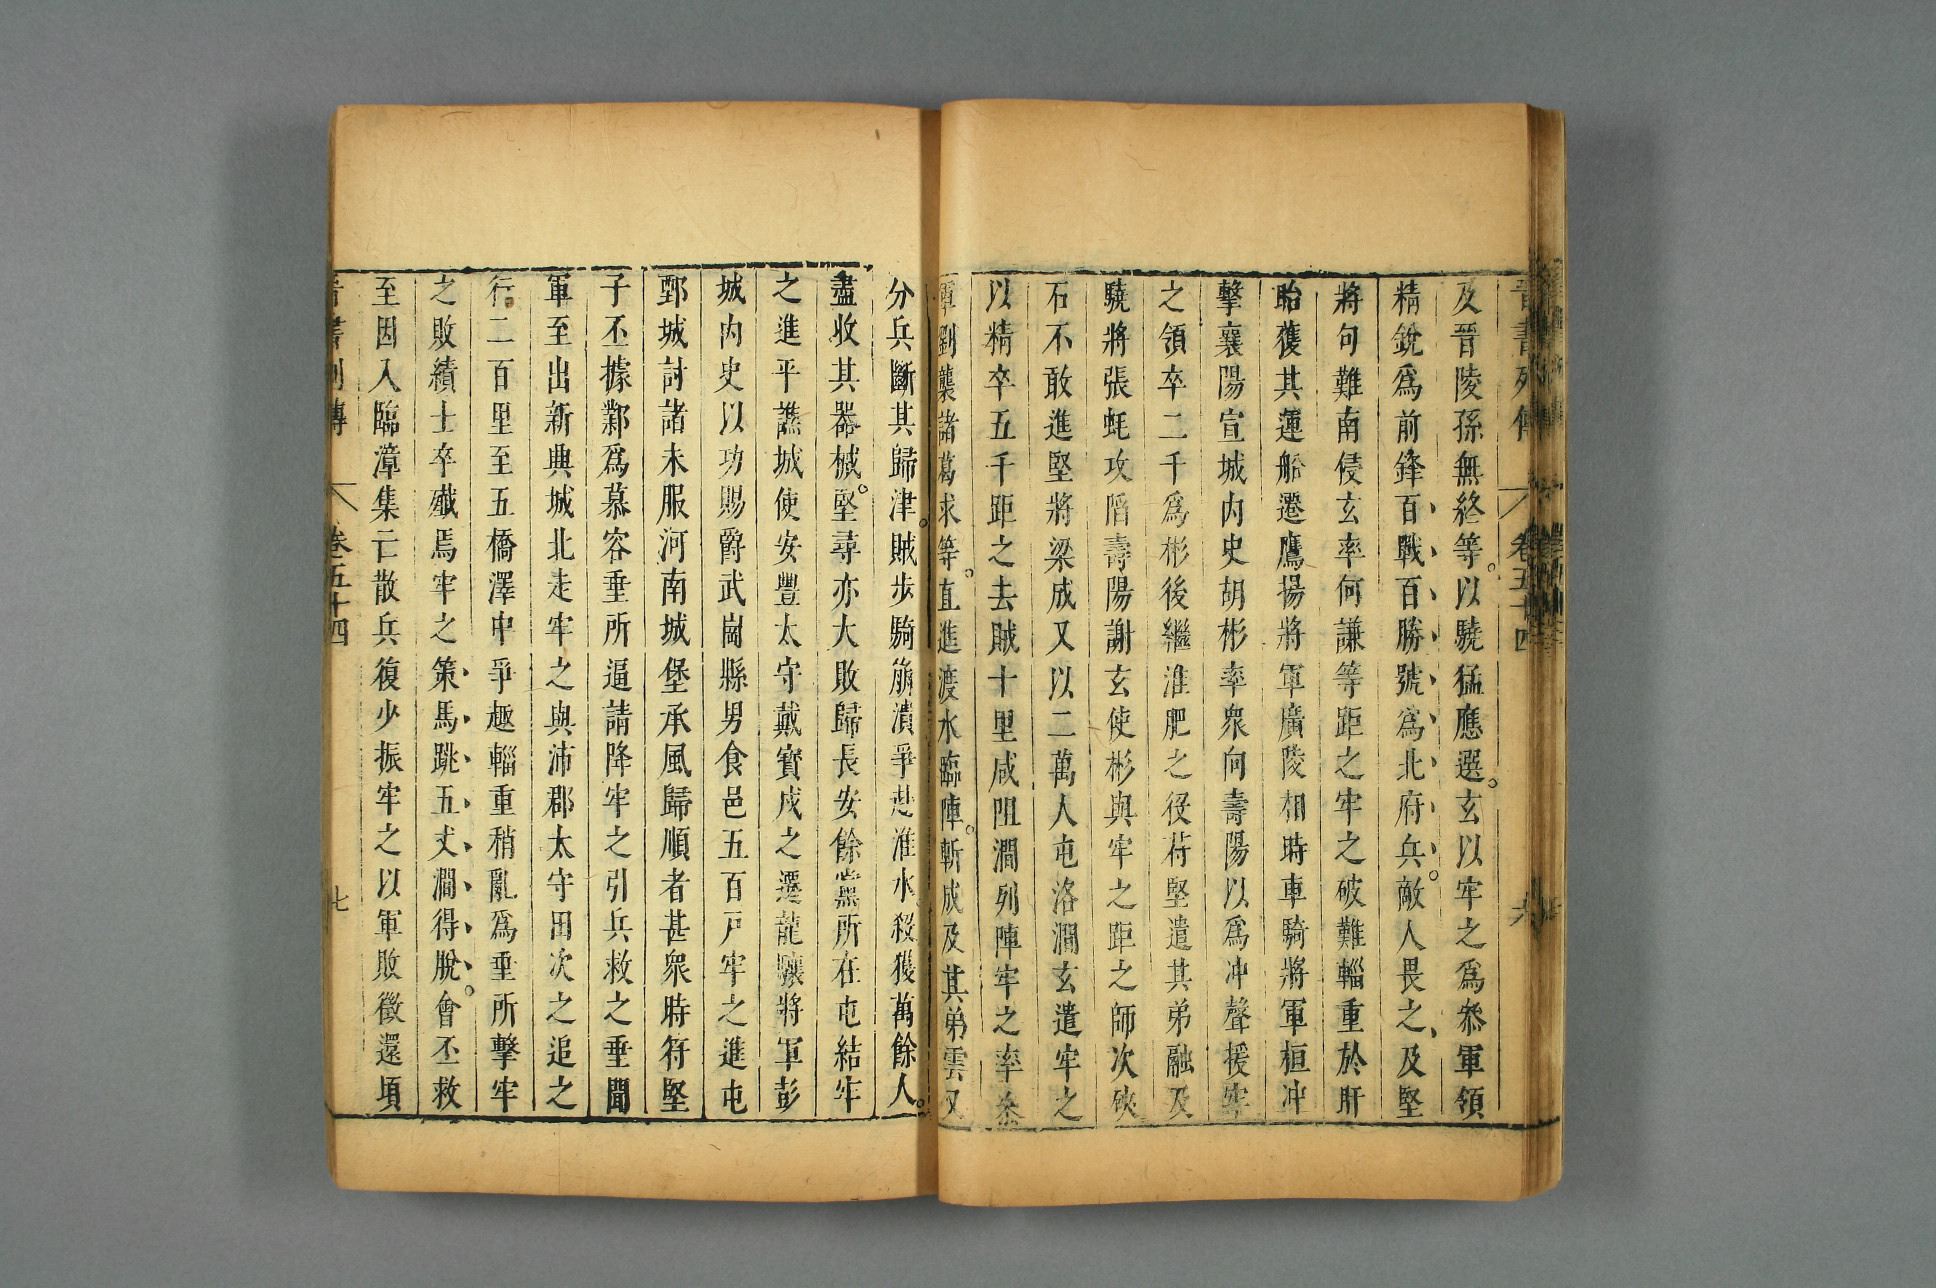 晉書列傳 卷五十四 六
及晉陵孫無終等。以驍猛應選。玄以牢之爲叅軍領
精銳爲前鋒百戰百勝號爲北府兵。敵人畏之、及堅
將句難南侵玄率何謙等距之牢之破難輜重於肝
眙獲其運船遷鷹揚將軍廣陵相時車騎將軍桓冲
擊襄陽宣城内史胡彬率衆向壽陽以爲冲聲援牢
之領卒二千爲彬後繼淮肥之役苻堅遣其弟融及
驍將張蚝攻陷壽陽謝玄使彬與牢之距之師次硤
石不敢進堅將梁成又以二萬人屯洛澗玄遣牢之
以精卒五千距之去賊十里成阻澗列陣牢之率叅
軍劉襲諸葛求等。直進渡水臨陣。斬成及其弟雲又
分兵斷其歸津。賊步騎崩潰爭赴淮水殺獲萬餘人。
盡收其器械。堅尋亦大敗歸長安餘黨所在屯結牢
之進平譙城使安豐太守戴寶戍之遷龍驤將軍彭
城内史以功賜爵武崗縣男食邑五百戶牢之進屯
鄄城討諸未服河南城堡承風歸順者甚衆時苻堅
子丕據鄴爲慕容垂所逼請降牢之引兵救之垂聞
軍至出新興城北走牢之與沛郡太守田次之追之
行二百里至五橋澤中爭趣輜重稍亂爲垂所擊牢
之敗績士卒殲焉牢之策馬跳五丈澗得脫。會丕救
至因入臨漳集亡散兵復少振牢之以軍敗徵還頃
晉書列傳 卷五十四 七